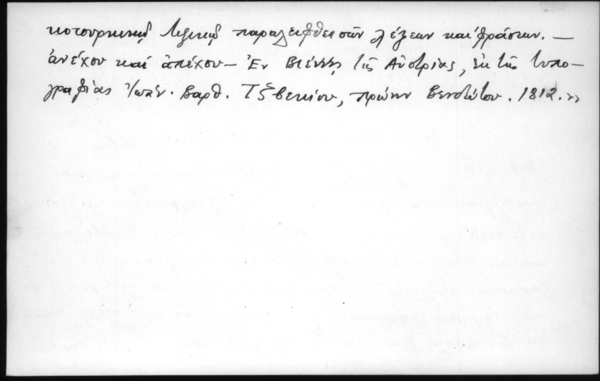 κοτουρκικῆς Λεξικῆς παραλειφθεισῶν λέξεων καὶ φράσεων. —
ἀνέχου καὶ ἀπέχου — Ἐν Βιέννῃ τῆς Αὐστρίας, ἐκ τῆς τυπο-
γραφίας Ἰωάν. Βαρθ. Τζβεκίου, πρώην Βενδότου. 1812.»